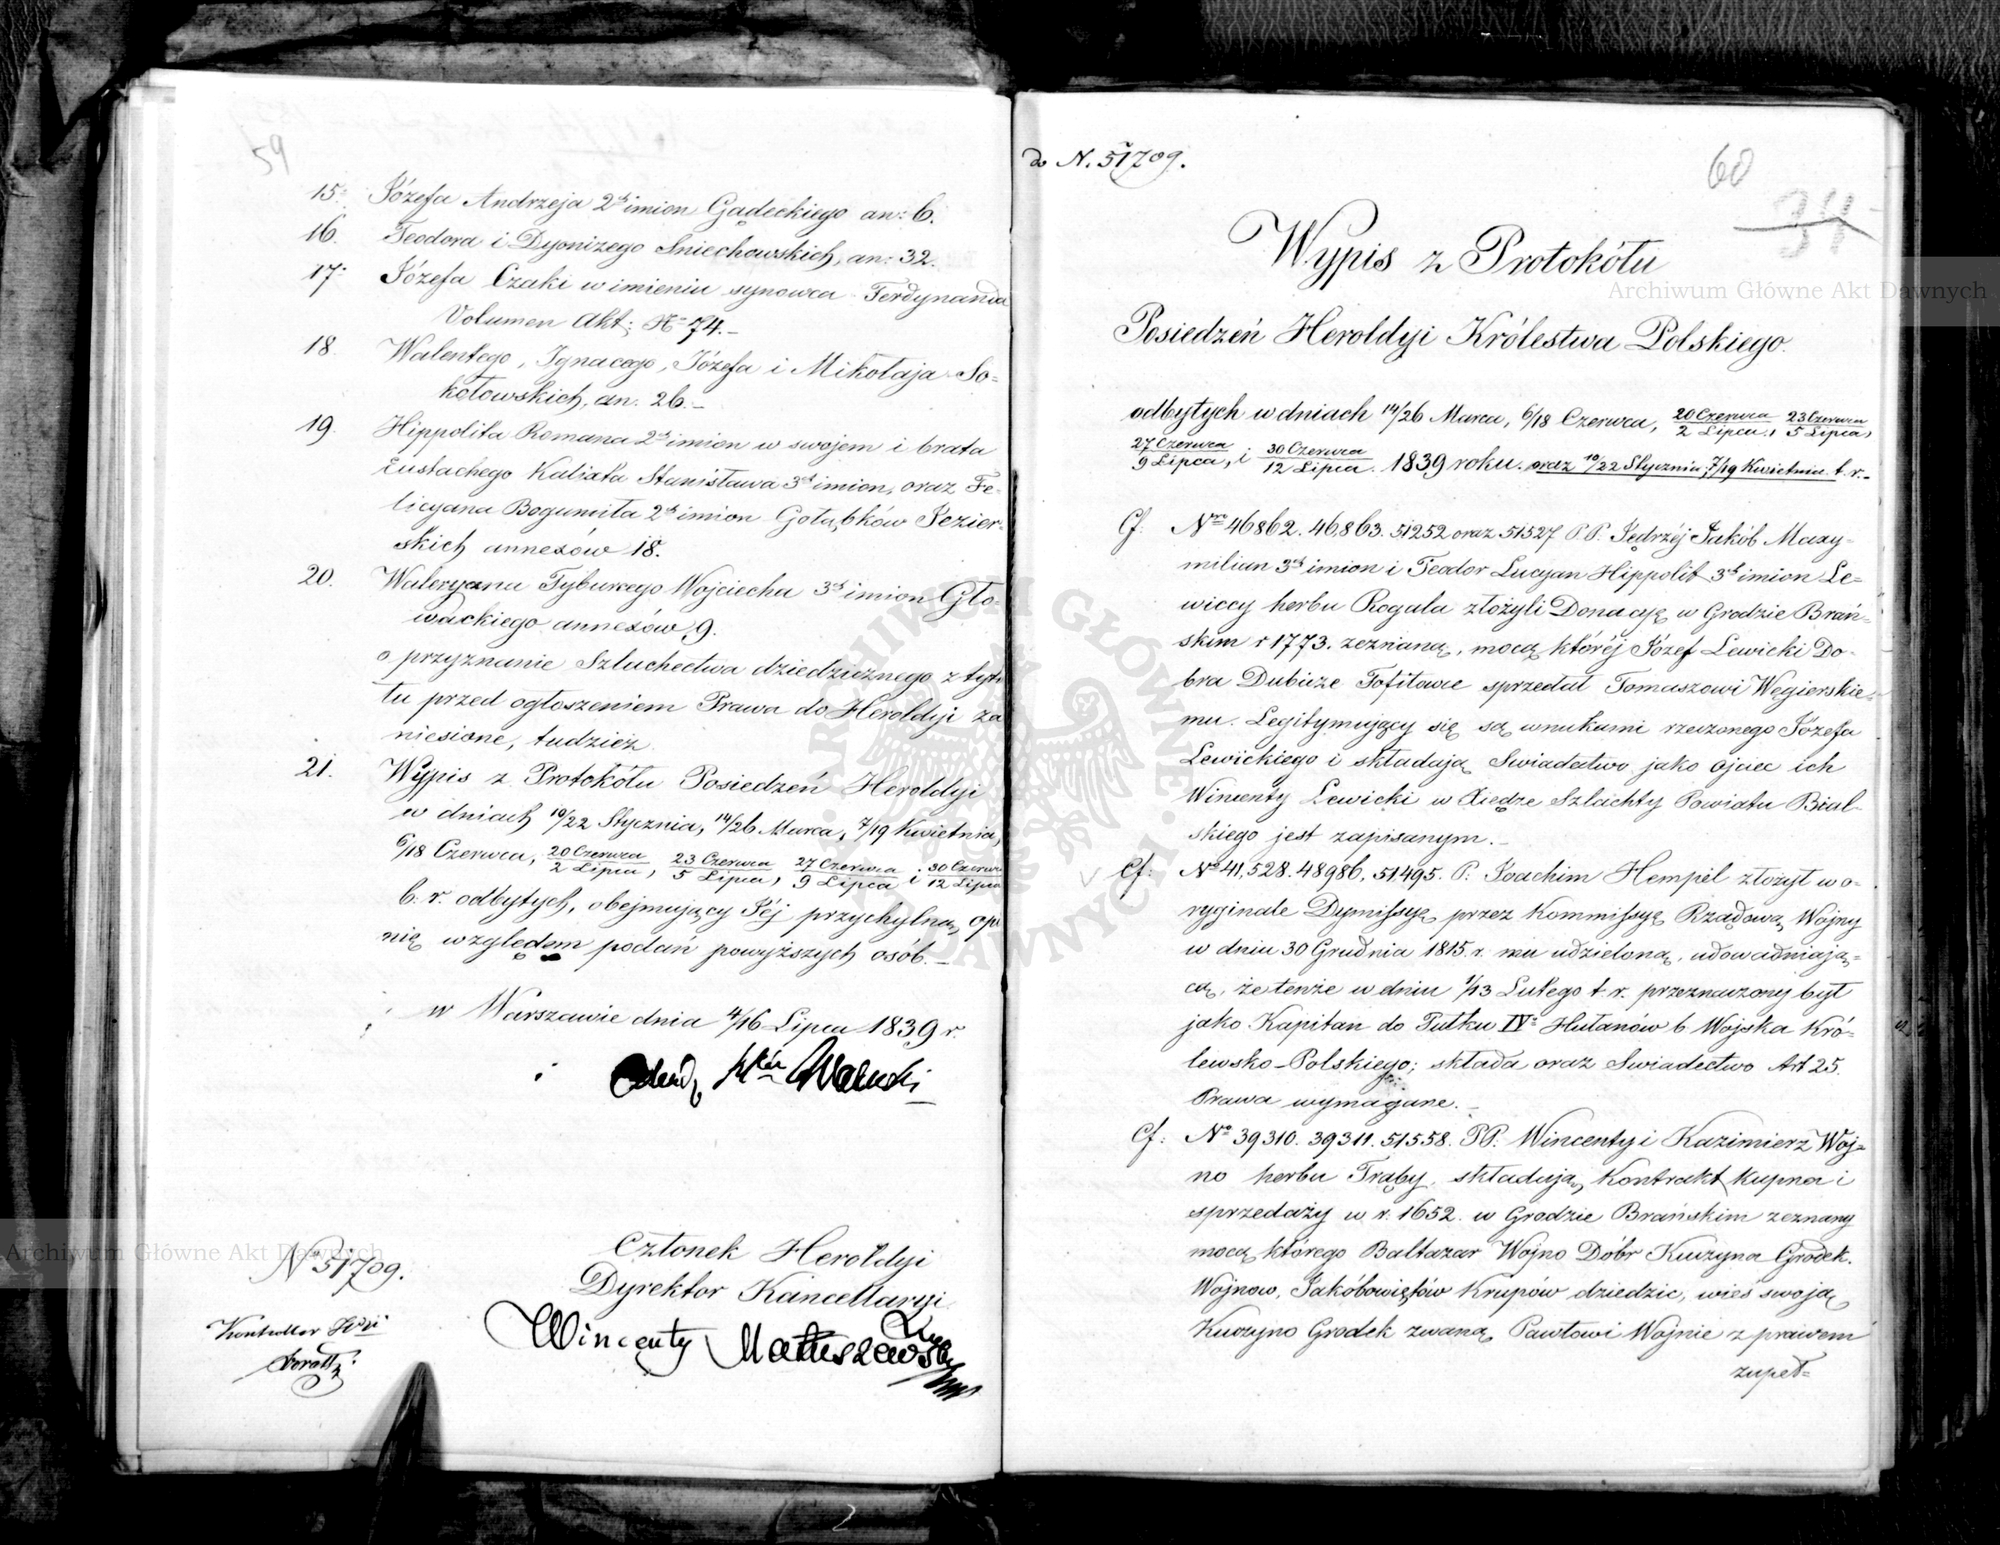 59
15. Józefa Andrzeja 2ch imion Gądeckiego an: 6.
16. Teodora i Dyonizego Sniechowskich, an: 32.
17. Józefa Czaki w imieniu synowca Ferdynanda
Volumen Akt; No 74.
18 Walentego, Ignacego, Józefa i Mikołaja So=
kołowskich, an. 26.
19. Hippolita Romana 2ch imion w swojem i brata
Eustachego Kalixta Stanisława 3ch imion, oraz Fe=
licyana Bogumiła 2ch imion Gołąbków Jezier=
skich annexów 18.
20. Waleryana Tyburcego Wojciecha 3ch imion Gło=
wackiego annexów 9.
o przyznanie Szlachectwa dziedzicznego z tytu
łu przed ogłoszeniem Prawa do Heroldyi za
niesione, tudzież
21. Wypis z Protokółu Posiedzeń Heroldyi
w dniach 10/22 Stycznia, 14/26 Marca, 7/19 Kwietnia,
6/18 Czerwca, 20 Czerwca/2 Lipca, 23 Czerwca/5 Lipca, 27 Czerwca/9 Lipca i 30 Czerwca/12 Lipca
b. r. odbytych, obejmujący Jéj przychylną opi
nię względem podań powyższych osób.
w Warszawie dnia 4/16 Lipca 1839 r.
Członek Heroldyi
Dyrektor Kancellaryi
Wincenty Matuszewski
N 51709.
Kontroller
do N. 51709.
60
34
Wypis z Protokółu
Posiedzeń Heroldyi Królestwa Polskiego.
odbytych w dniach 14/26 Marca, 6/18 Czerwca, 20 Czerwca/2 Lipca, 23 Czerwca/5 Lipca,
27 Czerwca/9 Lipca, i 30 Czerwca/12 Lipca. 1839 roku. oraz 10/22 Stycznia, 7/19 Kwietnia t. r.
Cf. Nro 46862. 46,863. 51252 oraz 51527 P.P. Jędrzéj Jakób Maxy=
milian 3ch imion i Teodor Lucyan Hippolit 3ch imion Le=
wiccy herbu Rogala złożyli Donacyę w Grodzie Brań=
skim r 1773. zeznaną, mocą któréj Józef Lewicki Do=
bra Dubicze Tofiłowce sprzedał Tomaszowi Węgierskie=
mu. Legitymujący się są wnukami rzeczonego Józefa
Lewickiego i składają Swiadectwo jako ojciec ich
Wincenty Lewicki w Xiędze Szlachty Powiatu Bial=
skiego jest zapisanym.
Cf: No 41,528. 48986, 51495. P. Joachim Hempel złożył w o=
ryginale Dymissyę przez Kommissyę Rządową Wojny
w dniu 30 Grudnia 1815. r. mu udzieloną, udowadniają=
cą, że tenże w dniu 1/13 Lutego t. r. przeznaczony był
jako Kapitan do Pułku IVo Hułanów b. Wojska Kró=
lewsko-Polskiego; składa oraz Swiadectwo Art 25.
Prawa wymagane.
Cf: No 39310. 39311. 51558. PP. Wincenty i Kazimierz Woj=
no herbu Trąby, składają Kontrakt kupna i
sprzedaży w r. 1652. w Grodzie Brańskim zeznany
mocą którego Baltazar Wojno Dóbr Kuczyna Grodek.
Wojnow, Jakóbowiętów Krupów dziedzic, wieś swoją
Kuczyno Grodek zwaną, Pawłowi Wojnie z prawem
zupeł=
Archiwum Główne Akt Dawnych
Archiwum Główne Akt Dawnych
ARCHIWUM GŁÓWNE AKT DAWNYCH